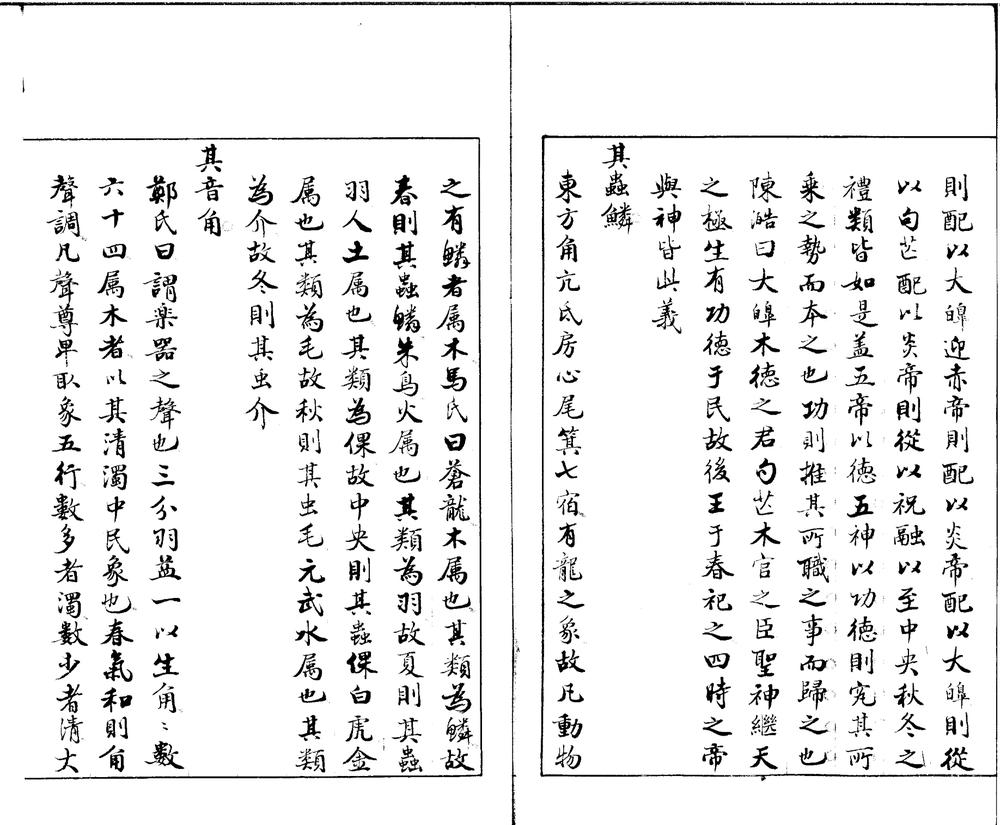 則配以大皥迎赤帝則配以炎帝配以大皥則從
以句芒配以炎帝則從以祝融以至中央秋冬之
禮類皆如是盖五帝以德五神以功德則究其所
乘之勢而本之也功則推其所職之事而歸之也
陳澔曰大皥木德之君句芒木官之臣聖神繼天
之極生有功德于民故後王于春祀之四時之帝
與神皆此義
其蟲鱗
東方角亢氐房心尾箕七宿有龍之象故凡動物
之有鱗者属木馬氏曰蒼龍木属也其類為鱗故
春則其蟲鱗朱鳥火属也其類為羽故夏則其蟲
羽人土属也其類為倮故中央則其蟲倮白虎金
属也其類為毛故秋則其虫毛元武水属也其類
為介故冬則其虫介
其音角
鄭氏曰謂楽器之聲也三分羽益一以生角〻數
六十四属木者以其清濁中民象也春氣和則角
聲調凡聲尊卑取象五行數多者濁數少者清大